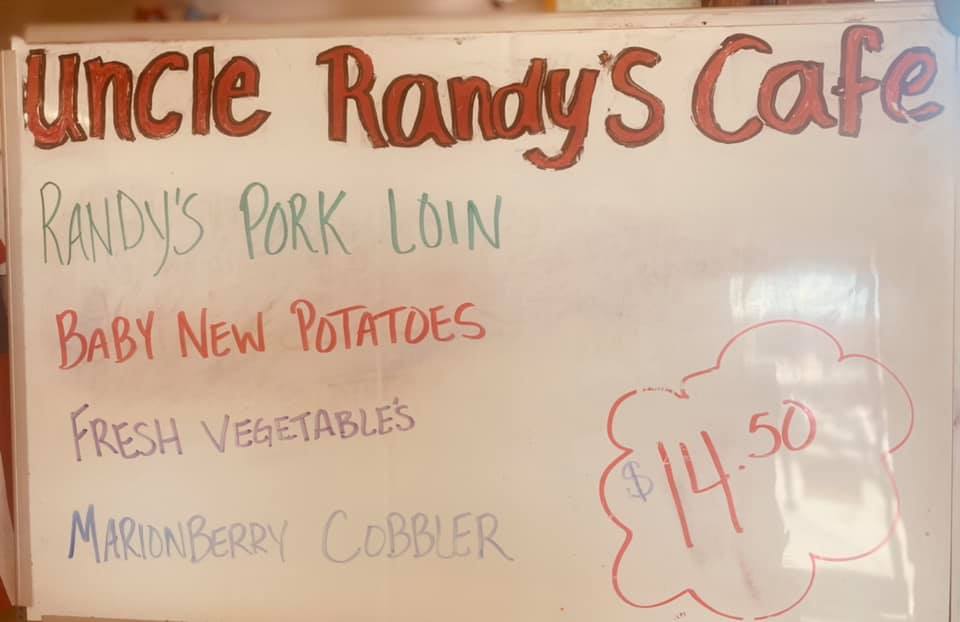 Uncle Randy's Cafe
RANDY'S PORK LOIN
BABY NEW POTATOES
FRESH VEGETABLE'S
MARIONBERRY COBBLER
$14.50